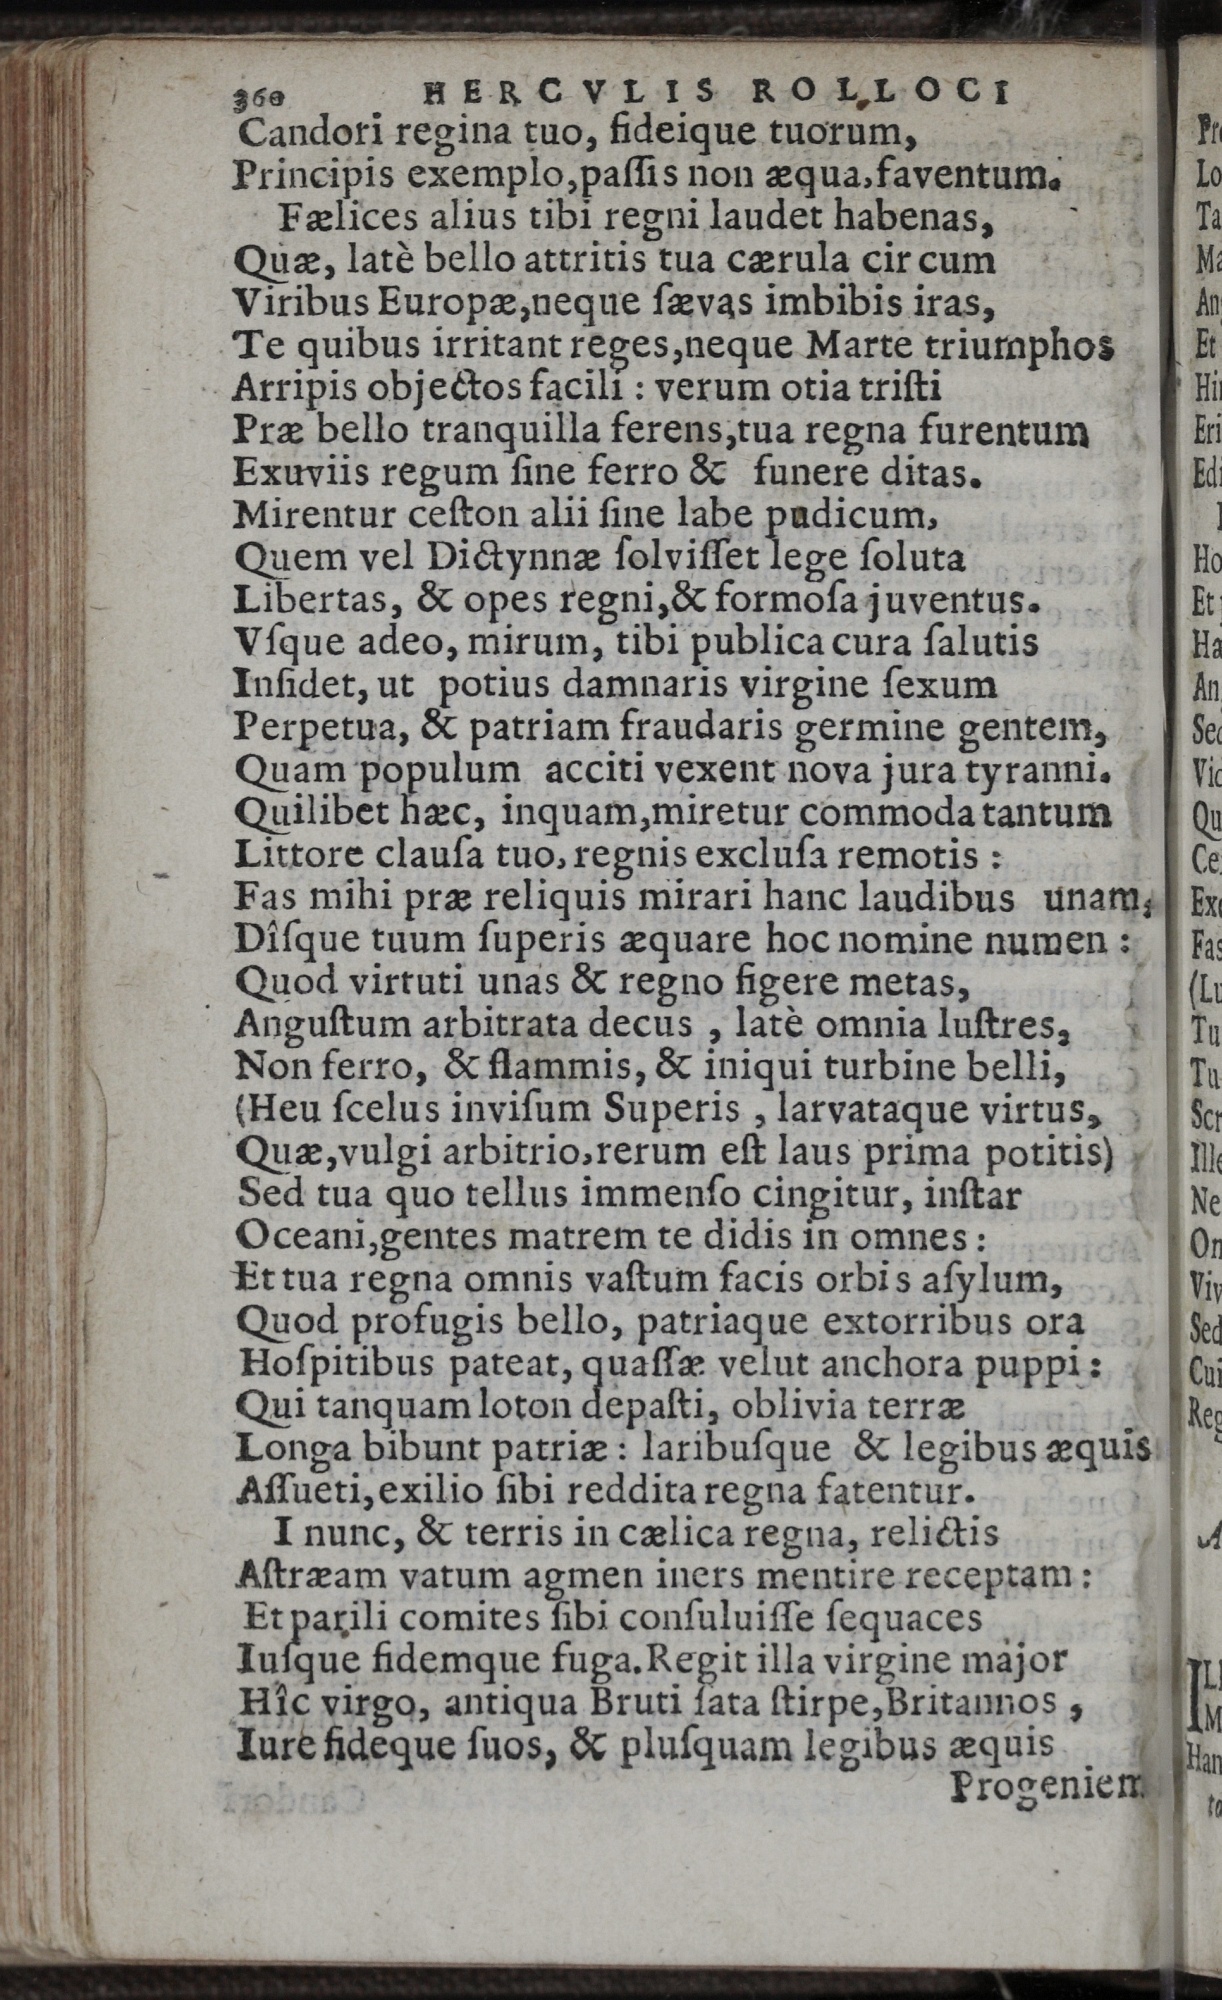 360 HERCVLIS ROLLOCI
Candori regina tuo, fideique tuorum,
Principis exemplo, paſſis non æqua, faventum.
Fælices alius tibi regni laudet habenas,
Quæ, latè bello attritis tua cærula circum
Viribus Europæ, neque ſævas imbibis iras,
Te quibus irritant reges, neque Marte triumphos
Arripis objectos facili: verum otia triſti
Præ bello tranquilla ferens, tua regna furentum
Exuviis regum ſine ferro & funere ditas.
Mirentur ceſton alii ſine labe pudicum,
Quem vel Dictynnæ ſolviſſet lege ſoluta
Libertas, & opes regni, & formoſa juventus.
Vſque adeo, mirum, tibi publica cura ſalutis
Inſidet, ut potius damnaris virgine ſexum
Perpetua, & patriam fraudaris germine gentem,
Quam populum acciti vexent nova jura tyranni.
Quilibet hæc, inquam, miretur commoda tantum
Littore clauſa tuo, regnis excluſa remotis:
Fas mihi præ reliquis mirari hanc laudibus unam,
Dîſque tuum ſuperis æquare hoc nomine numen:
Quod virtuti unas & regno figere metas,
Anguſtum arbitrata decus, latè omnia luſtres,
Non ferro, & flammis, & iniqui turbine belli,
(Heu ſcelus inviſum Superis, larvataque virtus,
Quæ, vulgi arbitrio, rerum eſt laus prima potitis)
Sed tua quo tellus immenſo cingitur, inſtar
Oceani, gentes matrem te didis in omnes:
Et tua regna omnis vaſtum facis orbis aſylum,
Quod profugis bello, patriaque extorribus ora
Hoſpitibus pateat, quaſſæ velut anchora puppi:
Qui tanquam loton depaſti, oblivia terræ
Longa bibunt patriæ: laribuſque & legibus æquis
Aſſueti, exilio ſibi reddita regna fatentur.
I nunc, & terris in cælica regna, relictis
Aſtræam vatum agmen iners mentire receptam:
Et parili comites ſibi conſuluiſſe ſequaces
Iuſque fidemque fuga. Regit illa virgine major
Hîc virgo, antiqua Bruti ſata ſtirpe, Britannos,
Iure fideque ſuos, & pluſquam legibus æquis
Progeniem